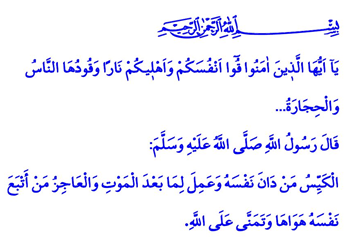 بِسْمِ اللّٰهِ الرَّحْمٰنِ الرَّحِيمِ
يَآ اَيُّهَا الَّذ۪ينَ اٰمَنُوا قُٓوا اَنْفُسَكُمْ وَاَهْل۪يكُمْ نَارًا وَقُودُهَا النَّاسُ
وَالْحِجَارَةُ...
قَالَ رَسُولُ اللَّهِ صَلَّى اللَّهُ عَلَيْهِ وَسَلَّمَ:
الْكَيِّسُ مَنْ دَانَ نَفْسَهُ وَعَمِلَ لِمَا بَعْدَ الْمَوْتِ وَالْعَاجِزُ مَنْ أَتْبَعَ
نَفْسَهُ هَوَاهَا وَتَمَنَّى عَلَى اللَّهِ.